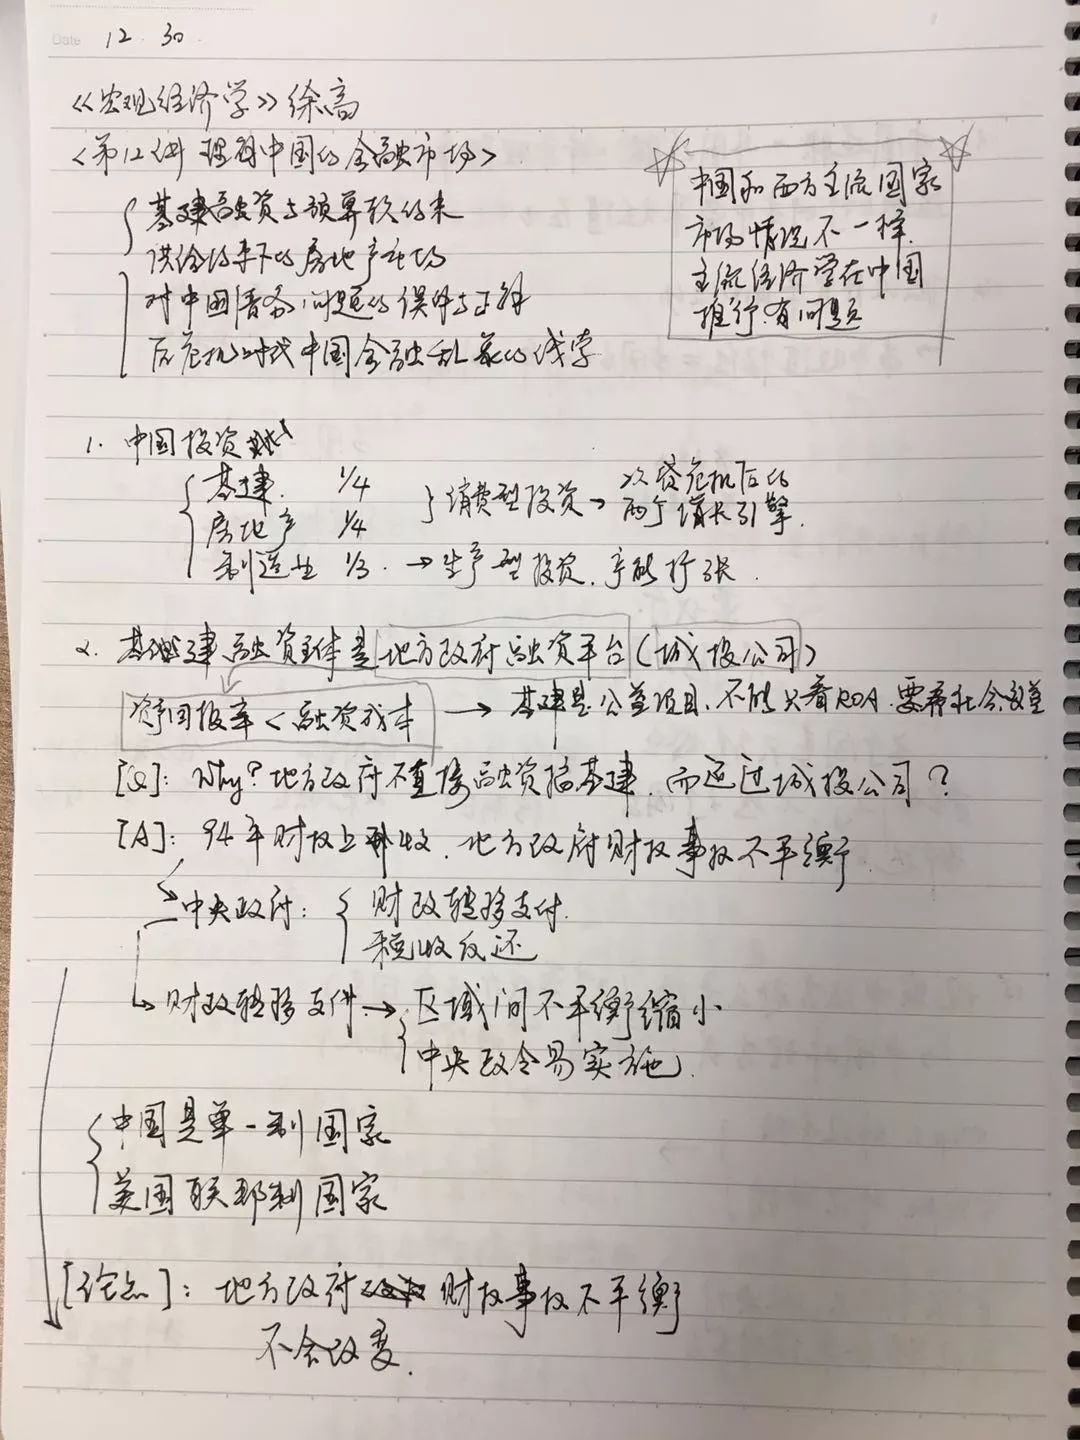 Date 12.30.
《宏观经济学》徐高
<第12讲 理解中国的金融市场>
基建融资与预算软约束
供给约束下的房地产市场
对中国债务问题的误解与正解
后危机时代中国金融乱象的浅学
中国和西方主流国家
市场情况不一样.
主流经济学在中国
推行.有问题
1. 中国投资
基建. 1/4
房地产 1/4
消费型投资→次贷危机后的
两个增长引擎.
制造业 1/3. → 生产型投资. 产能扩张.
2. 基建融资主体是地方政府融资平台(城投公司)
资回报率 < 融资成本 → 基建是公益项目.不能只看ROA.要看社会效益
[Q]: Why?地方政府不直接融资搞基建.而通过城投公司?
[A]: 94年财权上收.地方政府财权事权不平衡.
→中央政府: 财政转移支付.
税收反还
→财政转移支付→区域间不平衡缩小
中央政令易实施.
中国是单一制国家
美国联邦制国家
[论点]: 地方政府财权事权不平衡
不会改变.